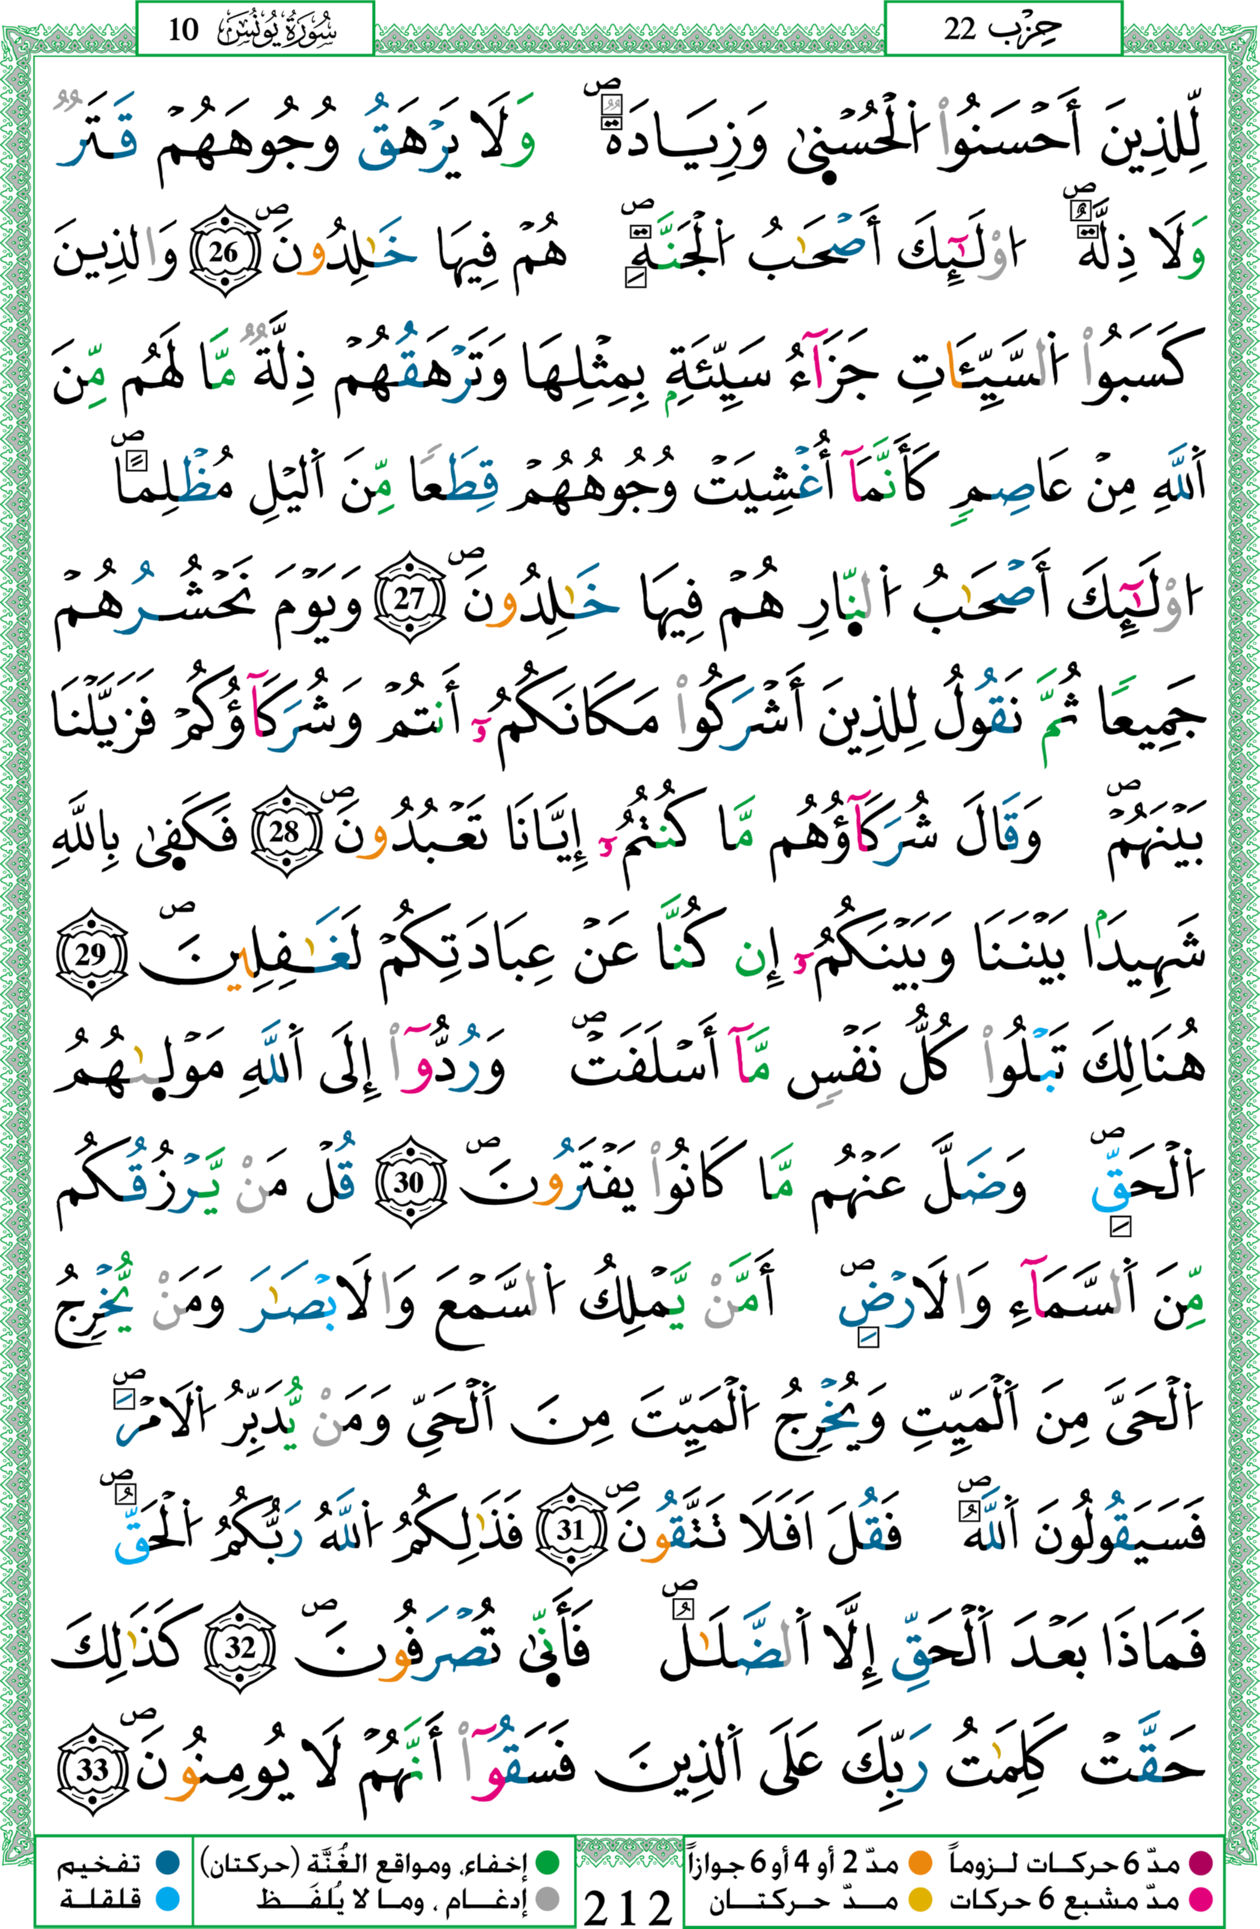 حِزْب 22
سُورَةُ يُونُسَ 10
لِّلذِينَ أَحْسَنُواْ اُ۬لْحُسْنۭيٰ وَزِيَادَةٞۖ وَلَا يَرْهَقُ وُجُوهَهُمْ قَتَرٞ
وَلَا ذِلَّةٌۖ ا۟وْلَٰٓئِكَ أَصْحَٰبُ اُ۬لْجَنَّةِۖ هُمْ فِيهَا خَٰلِدُونَۖ 26 وَالذِينَ
كَسَبُواْ اُ۬لسَّيِّـَٔاتِ جَزَآءُ سَيِّئَةِۢ بِمِثْلِهَا وَتَرْهَقُهُمْ ذِلَّةٞ مَّا لَهُم مِّنَ
اَ۬للَّهِ مِنْ عَاصِمٖ كَأَنَّمَآ أُغْشِيَتْ وُجُوهُهُمْ قِطَعاٗ مِّنَ اَ۬ليْلِ مُظْلِماًۖ
ا۟وْلَٰٓئِكَ أَصْحَٰبُ اُ۬لنّۭارِ هُمْ فِيهَا خَٰلِدُونَۖ 27 وَيَوْمَ نَحْشُرُهُمْ
جَمِيعاٗ ثُمَّ نَقُولُ لِلذِينَ أَشْرَكُواْ مَكَانَكُمُۥٓ أَنتُمْ وَشُرَكَآؤُكُمْ فَزَيَّلْنَا
بَيْنَهُمْۖ وَقَالَ شُرَكَآؤُهُم مَّا كُنتُمُۥٓ إِيَّانَا تَعْبُدُونَۖ 28 فَكَفۭيٰ بِاللَّهِ
شَهِيداَۢ بَيْنَنَا وَبَيْنَكُمُۥٓ إِن كُنَّا عَنْ عِبَادَتِكُمْ لَغَٰفِلِينَۖ 29
هُنَالِكَ تَبْلُواْ كُلُّ نَفْسٖ مَّآ أَسْلَفَتْۖ وَرُدُّوٓاْ إِلَى اَ۬للَّهِ مَوْلۭيٰهُمُ
اُ۬لْحَقِّۖ وَضَلَّ عَنْهُم مَّا كَانُواْ يَفْتَرُونَۖ 30 قُلْ مَنْ يَّرْزُقُكُم
مِّنَ اَ۬لسَّمَآءِ وَالَارْضِۖ أَمَّنْ يَّمْلِكُ اُ۬لسَّمْعَ وَالَابْصَٰرَ وَمَنْ يُّخْرِجُ
اُ۬لْحَيَّ مِنَ اَ۬لْمَيِّتِ وَيُخْرِجُ اُ۬لْمَيِّتَ مِنَ اَ۬لْحَيِّ وَمَنْ يُّدَبِّرُ اُ۬لَامْرَۖ
فَسَيَقُولُونَ اَ۬للَّهُۖ فَقُلَ اَفَلَا تَتَّقُونَۖ 31 فَذَٰلِكُمُ اُ۬للَّهُ رَبُّكُمُ اُ۬لْحَقُّۖ
فَمَاذَا بَعْدَ اَ۬لْحَقِّ إِلَّا اَ۬لضَّلَٰلُۖ فَأَنّۭيٰ تُصْرَفُونَۖ 32 كَذَٰلِكَ
حَقَّتْ كَلِمَٰتُ رَبِّكَ عَلَى اَ۬لذِينَ فَسَقُوٓاْ أَنَّهُمْ لَا يُومِنُونَۖ 33
مدّ 6 حركات لـزوماً مدّ 2 أو 4 أو 6 جوازاً
مدّ مشبع 6 حركات مــدّ حركتــان
212
إخفاء، ومواقع الغُنَّة (حركتان) تفخيم
إدغـام ، ومـا لا يُلفَـظ قلقلة